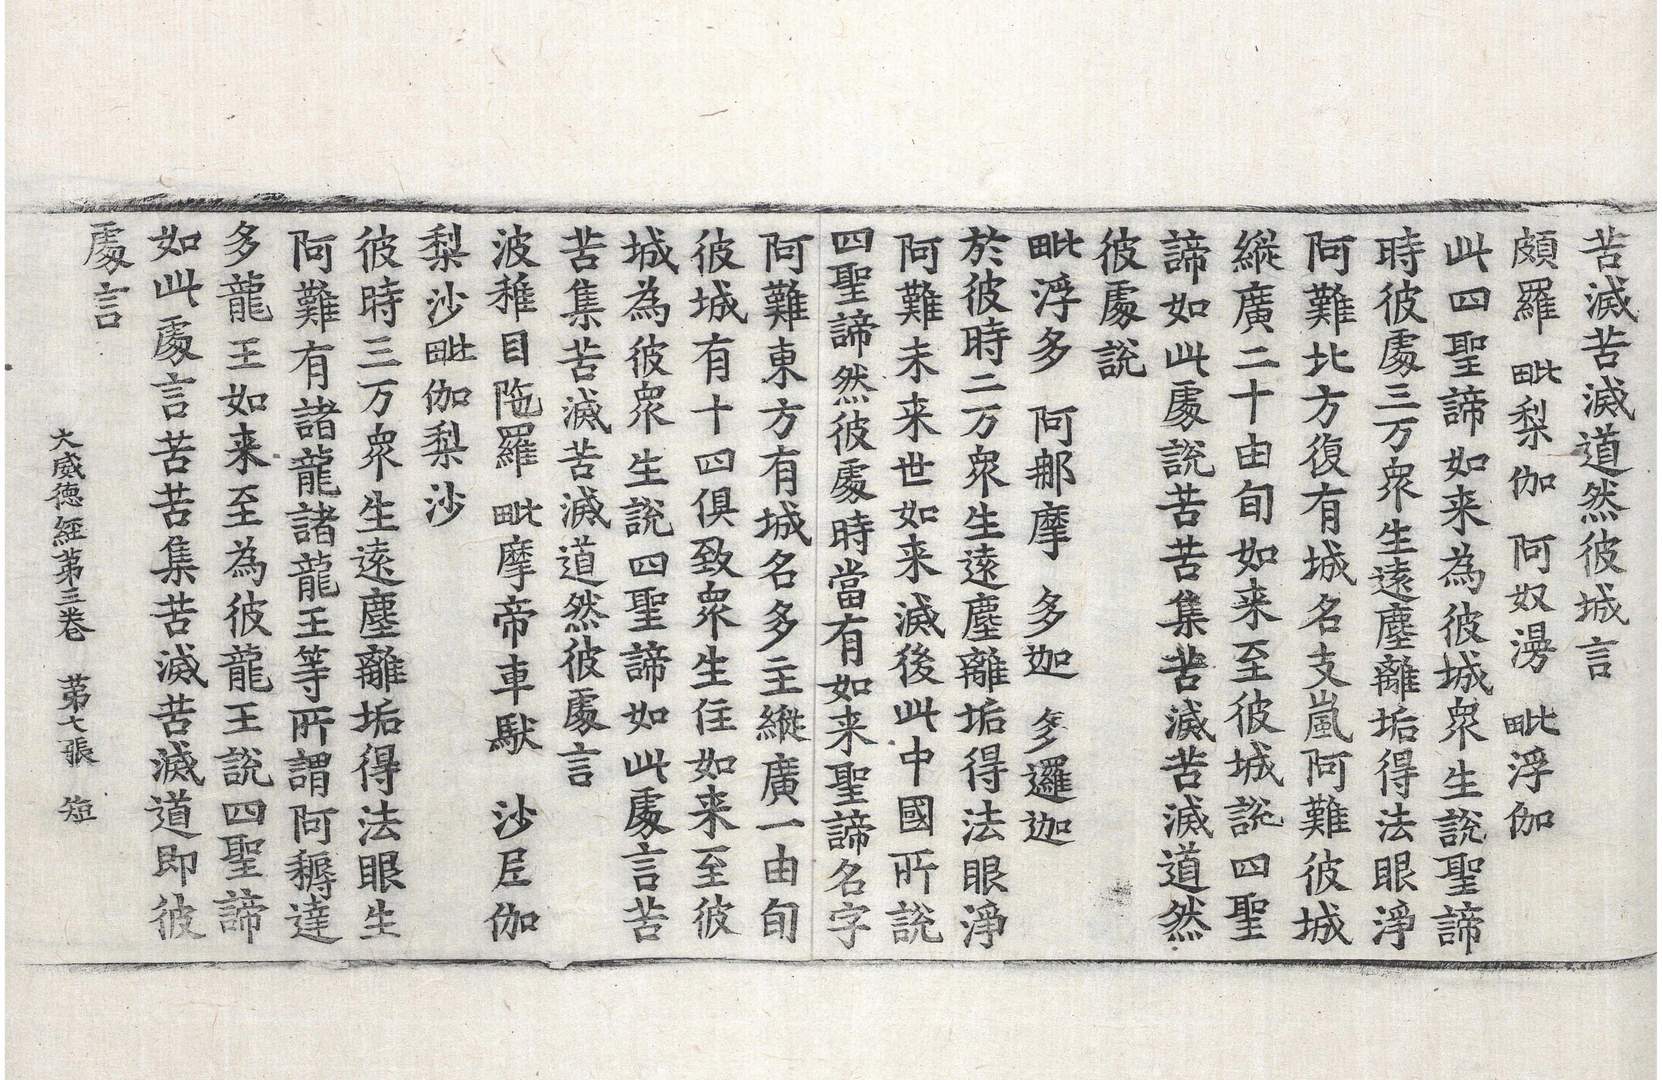 苦滅苦滅道然彼城言
頗羅　毗梨伽　阿奴漫　毗浮伽
此四聖諦如来為彼城衆生說聖諦
時彼處三万衆生遠塵離垢得法眼淨
阿難北方復有城名支嵐阿難彼城
縱廣二十由旬如来至彼城說四聖
諦如此處說苦苦集苦滅苦滅道然
彼處說
毗浮多　阿那摩　多迦　多邏迦
於彼時二万衆生遠塵離垢得法眼淨
阿難未来世如来滅後此中國所說
四聖諦然彼處時當有如来聖諦名字
阿難東方有城名多主縱廣一由旬
彼城有十四俱致衆生住如来至彼
城為彼衆生說四聖諦如此處言苦
苦集苦滅苦滅道然彼處言
波稚目陁羅　毗摩帝車馱　沙尼伽
梨沙毗伽梨沙
彼時三万衆生遠塵離垢得法眼生
阿難有諸龍諸龍王等所謂阿耨達
多龍王如来至為彼龍王說四聖諦
如此處言苦苦集苦滅苦滅道即彼
處言
大威德經第三卷　第七張　短